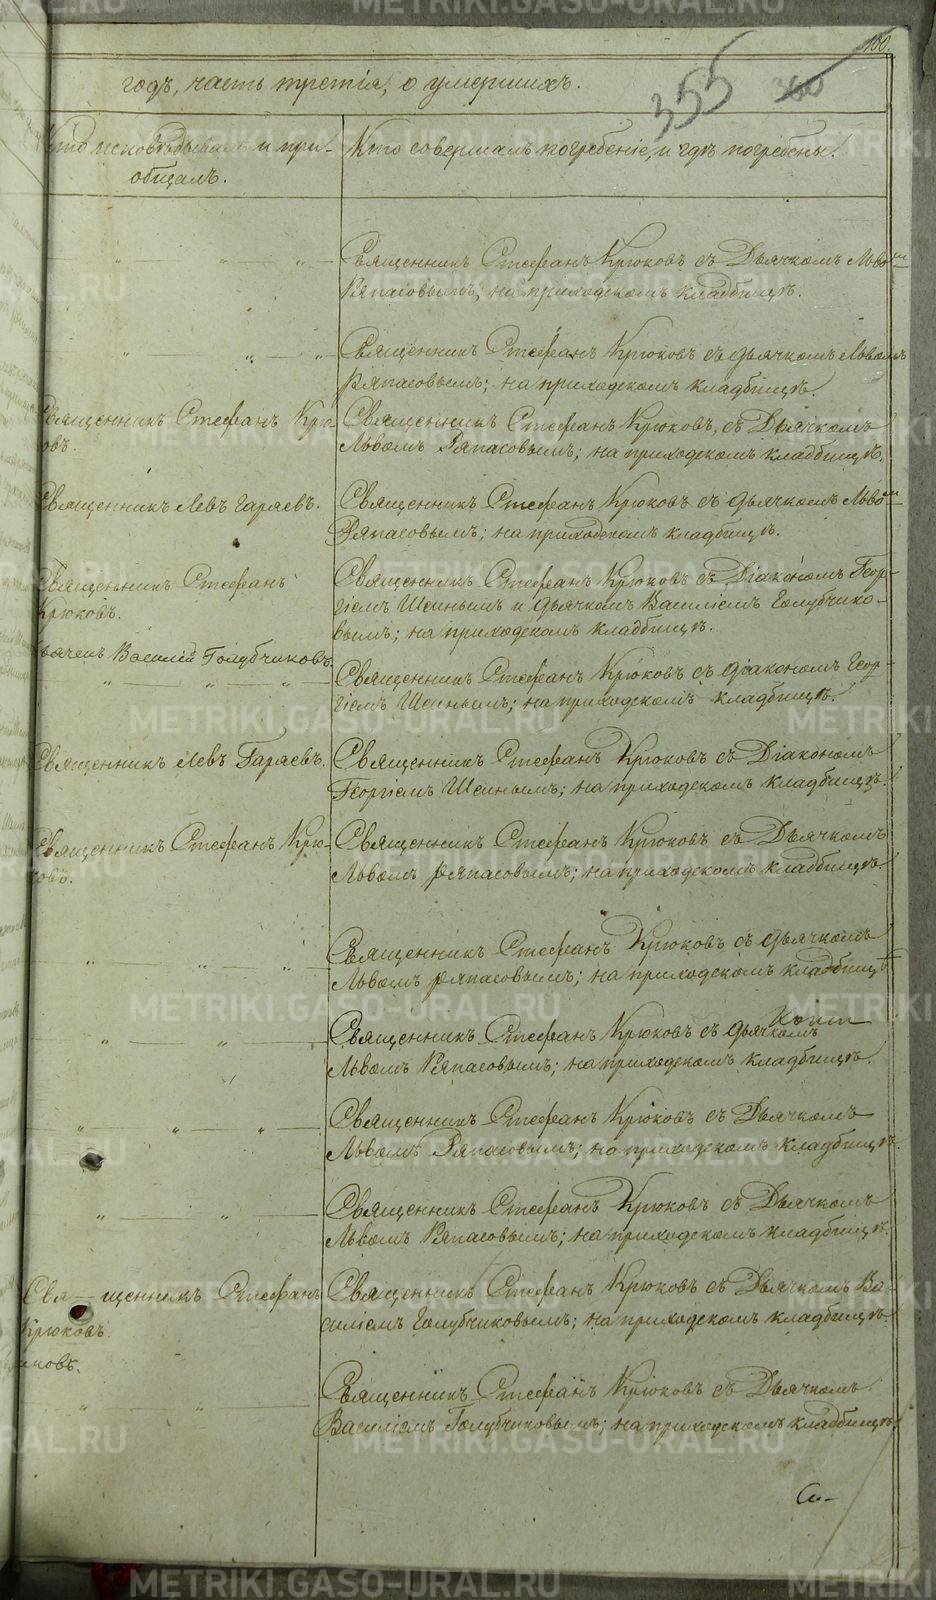 160.
355
360
годъ, часть третія, о умершихъ.
Кто исповѣдывалъ и прі-
общалъ.
Кто совершалъ погребеніе, и гдѣ погребены.
Священникъ Стефанъ Крюковъ съ Дьячкомъ Львом
Ряпасовымъ; на приходскомъ кладбищѣ.
Священникъ Стефанъ Крюковъ съ дьячкомъ Львомъ
Ряпасовымъ; на приходскомъ кладбищѣ.
Священникъ Стефанъ Крю-
овъ.
Священникъ Стефанъ Крюковъ, съ Дьячкомъ
Львомъ Ряпасовымъ; на приходскомъ кладбищѣ.
Священникъ Левъ Гаряевъ.
Священникъ Стефанъ Крюковъ съ дьячкомъ Львом
Ряпасовымъ; на приходскомъ кладбищѣ.
Священникъ Стефанъ
Крюковъ.
Священникъ Стефанъ Крюковъ съ Діакономъ Геор-
гіемъ Шеинымъ и дьячкомъ Василіемъ Голубчико-
вымъ; на приходскомъ кладбищѣ.
Василій Голубчиковъ.
Священникъ Стефанъ Крюковъ съ діакономъ Геор-
гіемъ Шеинымъ; на приходскомъ кладбищѣ.
Священникъ Левъ Гаряевъ.
Священникъ Стефанъ Крюковъ съ Діакономъ
Георгіемъ Шеинымъ; на приходскомъ кладбищѣ.
Священникъ Стефанъ Крю-
ковъ.
Священникъ Стефанъ Крюковъ съ Дьячкомъ
Львомъ Ряпасовымъ; на приходскомъ кладбищѣ.
Священникъ Стефанъ Крюковъ съ дьячкомъ
Львомъ Ряпасовымъ; на приходскомъ кладбищѣ
Священникъ Стефанъ Крюковъ съ дьячкомъ
Львомъ Ряпасовымъ; на приходскомъ кладбищѣ.
Священникъ Стефанъ Крюковъ съ Дьячкомъ
Львомъ Ряпасовымъ; на приходскомъ кладбищѣ.
Священникъ Стефанъ Крюковъ съ Дьячкомъ
Львомъ Ряпасовымъ; на приходскомъ кладбищѣ.
Свя-щенникъ Стефанъ
Крюковъ.
Священникъ Стефанъ Крюковъ съ Дьячкомъ Ва-
силіемъ Голубчиковымъ; на приходскомъ кладбищѣ.
Священникъ Стефанъ Крюковъ съ Дьячкомъ
Василіемъ Голубчиковымъ; на приходскомъ кладбищѣ.
METRIKI.GASO-URAL.RU